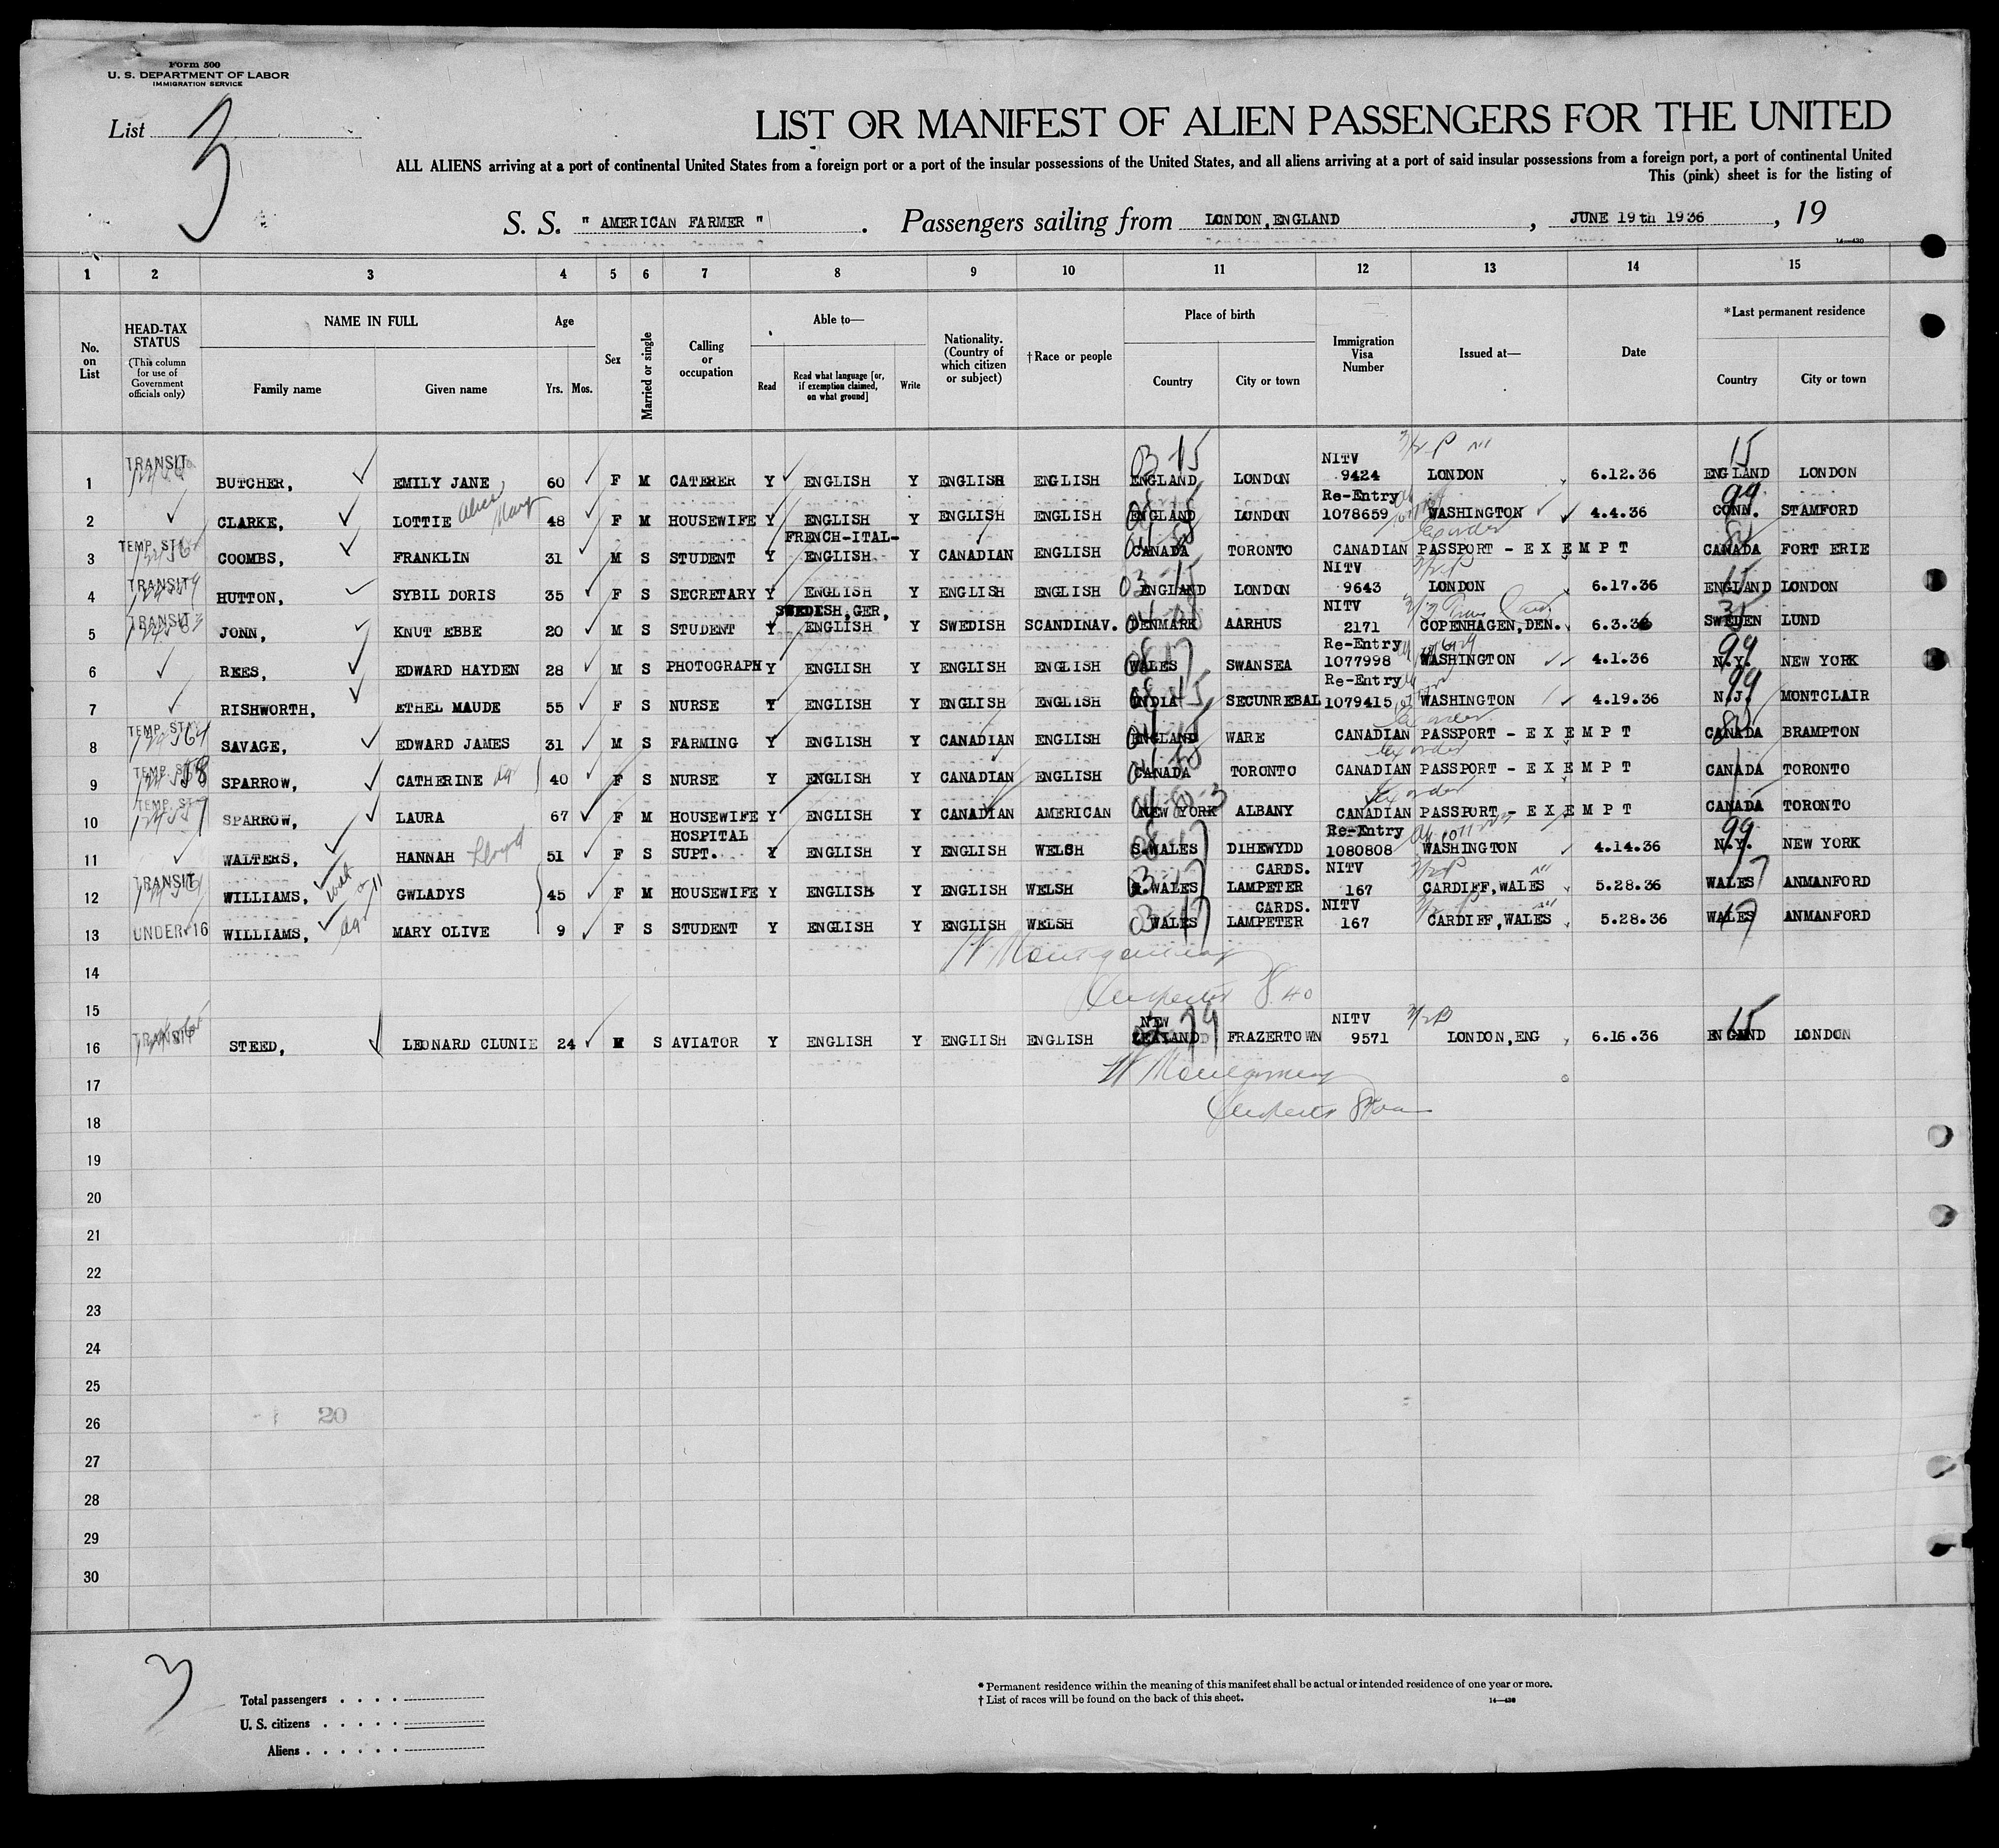 Form 500
U. S. DEPARTMENT OF LABOR
IMMIGRATION SERVICE
List 3
LIST OR MANIFEST OF ALIEN PASSENGERS FOR THE UNITED
ALL ALIENS arriving at a port of continental United States from a foreign port or a port of the insular possessions of the United States, and all aliens arriving at a port of said insular possessions from a foreign port, a port of continental United
This (pink) sheet is for the listing of
S. S. " AMERICAN FARMER " . Passengers sailing from LONDON, ENGLAND , JUNE 19th 1936 , 19
14—430
1 2 3 4 5 6 7 8 9 10 11 12 13 14 15
No. on List
HEAD-TAX STATUS (This column for use of Government officials only)
NAME IN FULL
Family name
Given name
Age
Yrs. Mos.
Sex
Married or single
Calling or occupation
Able to—
Read
Read what language [or, if exemption claimed, on what ground]
Write
Nationality. (Country of which citizen or subject)
†Race or people
Place of birth
Country
City or town
Immigration Visa Number
Issued at—
Date
*Last permanent residence
Country
City or town
1 TRANSIT BUTCHER, EMILY JANE 60 F M CATERER Y ENGLISH Y ENGLISH ENGLISH 03 15 ENGLAND LONDON NITV 9424 LONDON 6.12.36 15 ENGLAND LONDON
2 CLARKE, LOTTIE Alice Mary 48 F M HOUSEWIFE Y ENGLISH Y ENGLISH ENGLISH ENGLAND LONDON Re-Entry 1078659 WASHINGTON 4.4.36 99 CONN. STAMFORD
3 TEMP. STA COOMBS, FRANKLIN 31 M S STUDENT Y FRENCH-ITAL- ENGLISH Y CANADIAN ENGLISH CANADA TORONTO CANADIAN PASSPORT - E X E M P T CANADA FORT ERIE
4 TRANSIT HUTTON, SYBIL DORIS 35 F S SECRETARY Y ENGLISH Y ENGLISH ENGLISH 03 15 ENGLAND LONDON NITV 9643 LONDON 6.17.36 15 ENGLAND LONDON
5 TRANSIT JONN, KNUT EBBE 20 M S STUDENT Y SWEDISH, GER, ENGLISH Y SWEDISH SCANDINAV. DENMARK AARHUS NITV 2171 COPENHAGEN, DEN. 6.3.36 SWEDEN LUND
6 REES, EDWARD HAYDEN 28 M S PHOTOGRAPH Y ENGLISH Y ENGLISH ENGLISH WALES SWANSEA Re-Entry 1077998 WASHINGTON 4.1.36 99 N.Y. NEW YORK
7 RISHWORTH, ETHEL MAUDE 55 F S NURSE Y ENGLISH Y ENGLISH ENGLISH INDIA SECUNREBAL Re-Entry 1079415 WASHINGTON 4.19.36 99 N.J. MONTCLAIR
8 TEMP. STA SAVAGE, EDWARD JAMES 31 M S FARMING Y ENGLISH Y CANADIAN ENGLISH ENGLAND WARE CANADIAN PASSPORT - E X E M P T CANADA BRAMPTON
9 TEMP. STA SPARROW, CATHERINE 40 F S NURSE Y ENGLISH Y CANADIAN ENGLISH CANADA TORONTO CANADIAN PASSPORT - E X E M P T CANADA TORONTO
10 TEMP. STA SPARROW, LAURA 67 F M HOUSEWIFE Y ENGLISH Y CANADIAN AMERICAN NEW YORK ALBANY CANADIAN PASSPORT - E X E M P T CANADA TORONTO
11 WALTERS, HANNAH Lloyd 51 F S HOSPITAL SUPT. Y ENGLISH Y ENGLISH WELSH S.WALES DIHEWYDD Re-Entry 1080808 WASHINGTON 4.14.36 99 N.Y. NEW YORK
12 TRANSIT WILLIAMS, GWLADYS 45 F M HOUSEWIFE Y ENGLISH Y ENGLISH WELSH WALES CARDS. LAMPETER NITV 167 CARDIFF, WALES 5.28.36 WALES ANMANFORD
13 UNDER 16 WILLIAMS, MARY OLIVE 9 F S STUDENT Y ENGLISH Y ENGLISH WELSH WALES CARDS. LAMPETER NITV 167 CARDIFF, WALES 5.28.36 17 WALES ANMANFORD
W Montgomery
14
15
16 TRANSIT STEED, LEONARD CLUNIE 24 M S AVIATOR Y ENGLISH Y ENGLISH ENGLISH NEW ZEALAND FRAZERTOWN NITV 9571 LONDON, ENG 6.16.36 15 ENGLAND LONDON
W Montgomery
17
18
19
20
21
22
23
24
25
26
20
27
28
29
30
3
Total passengers . . . .
U. S. citizens . . . . .
Aliens . . . . . .
* Permanent residence within the meaning of this manifest shall be actual or intended residence of one year or more.
† List of races will be found on the back of this sheet.
14—430